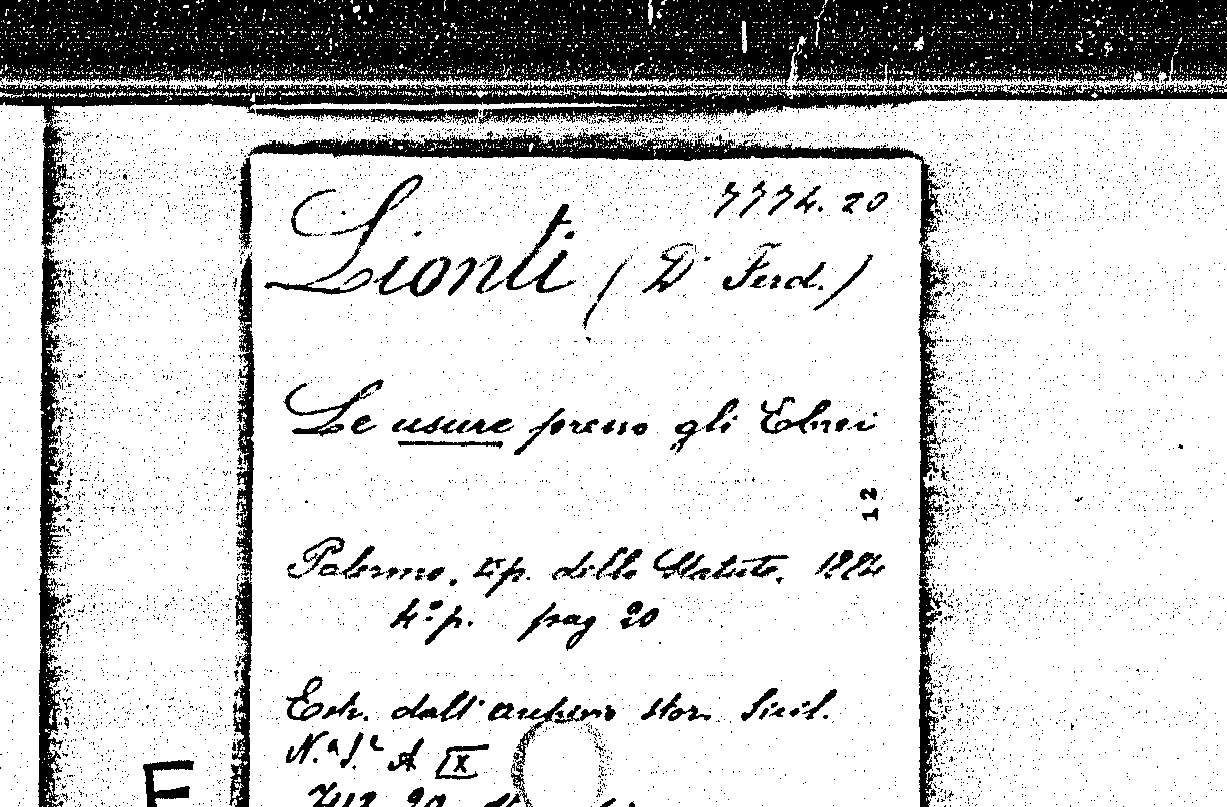 7774. 20
Lionti (Dr Ferd.)
Le usure presso gli Ebrei
12
Palermo, tip. dello Statuto, 1884
4º p. pag 20
Estr. dall'archivio stor. Sicil.
N.ª S.e A IX
E